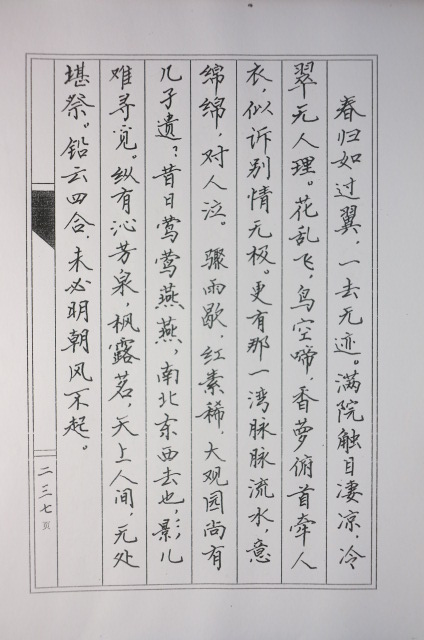 春归如过翼，一去无迹。满院触目凄凉，冷
翠无人理。花乱飞，鸟空啼，香萝俯首牵人
衣，似诉别情无极。更有那一湾脉脉流水，意
绵绵，对人泣。骤雨歇，红素稀，大观园尚有
几子遗？昔日莺莺燕燕，南北东西去也，影儿
难寻觅。纵有沁芳泉，枫露茗，天上人间，无处
堪祭。铅云四合，未必明朝风不起。
二三七页